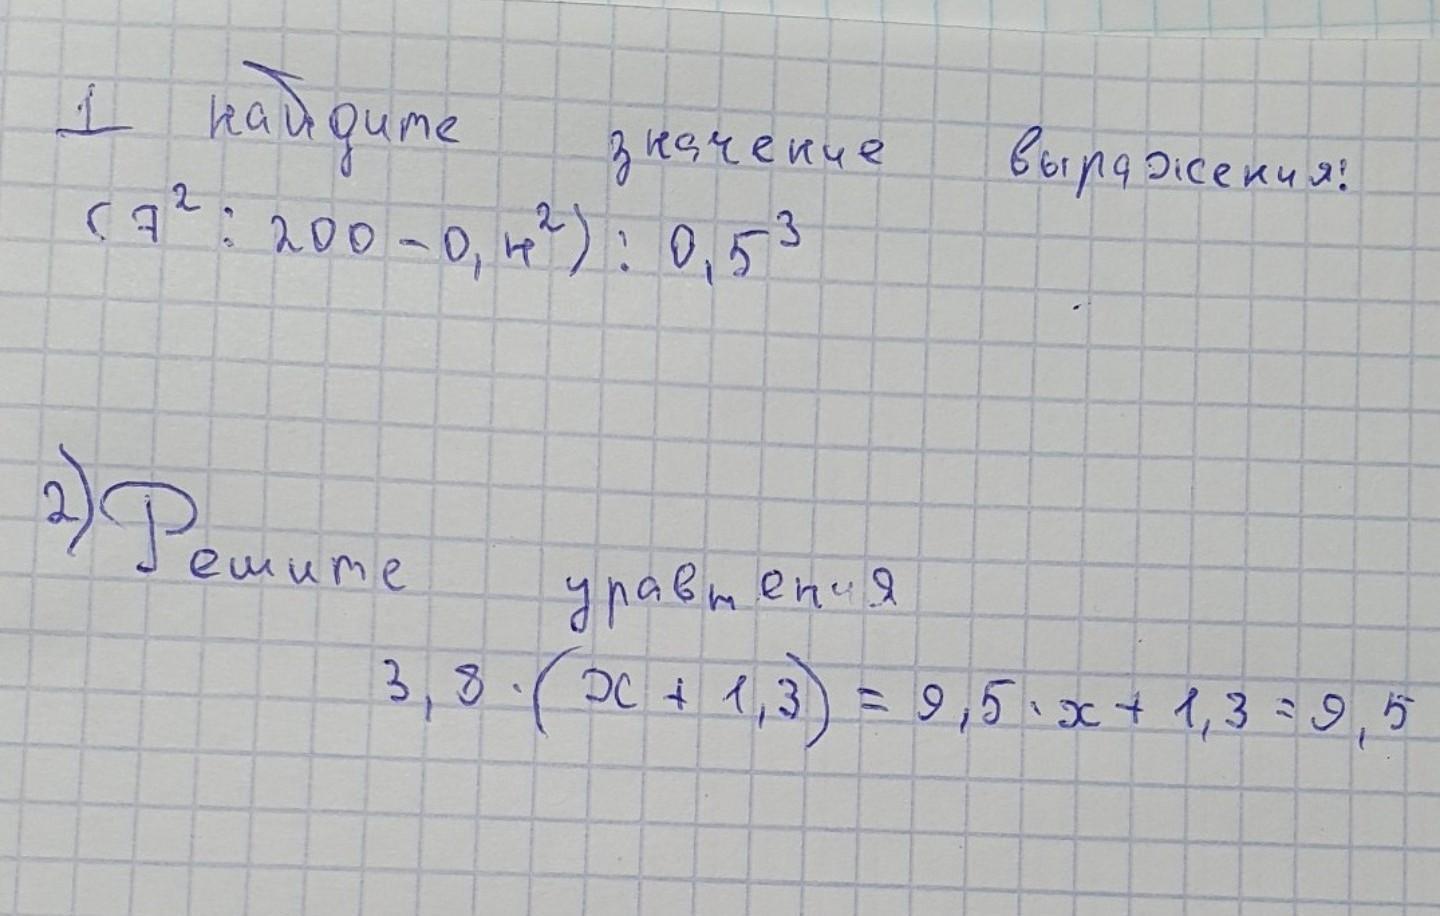 1 найдите значение выражения:
(7² : 200 - 0,4²) : 0,5³
2) Решите уравнения
3,8 · (x + 1,3) = 9,5 · x + 1,3 = 9,5